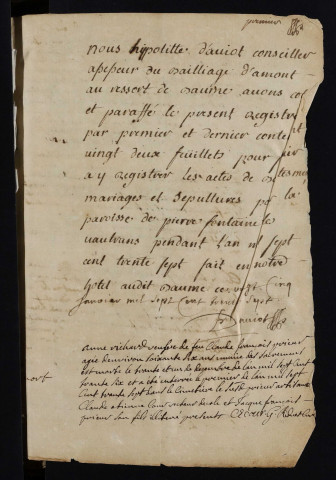 premier
nous hypolitte d'auiot conseiller
assesseur du bailliage d'amont
au ressort de baume auons cot
et paraffé le present registre
par premier et dernier conte
vingt deux feuillets pour
a y registrer les actes de
mariages et sepultures p la
paroisse de pierre fontaine le
vautrans pendant l'an mil sept
cent trente sept fait en notre
hotel audit baume ce vingt cinq
janvier mil sept cent trente sept
mort
anne richard veufve de feu claude françois
agée d'environ soixante dix ans munie des sacremens
est morte le trente et un de decembre de l'an mil sept cent
trente six et a eté enterrée le premier de l'an mil sept
cent trente sept dans le cimetiere
claude etienne et jacque françois
son fils presents